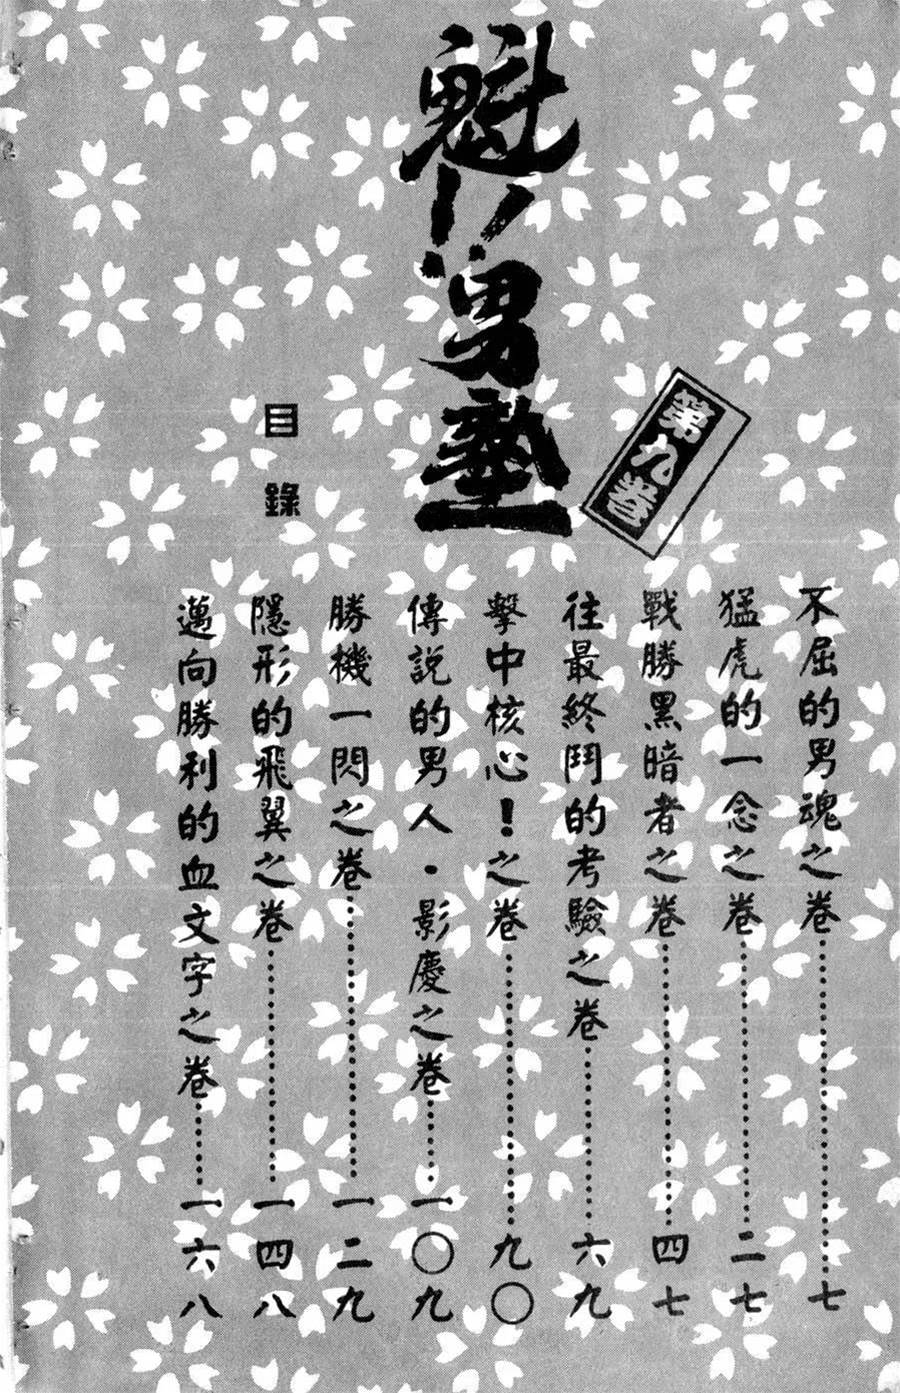 魁!!男塾
第九卷
目錄
不屈的男魂之卷……七
猛虎的一念之卷……二七
戰勝黑暗者之卷……四七
往最終鬥的考驗之卷……六九
擊中核心!之卷……九〇
傳說的男人・影慶之卷……一〇九
勝機一閃之卷……一二九
隱形的飛翼之卷……一四八
邁向勝利的血文字之卷……一六八